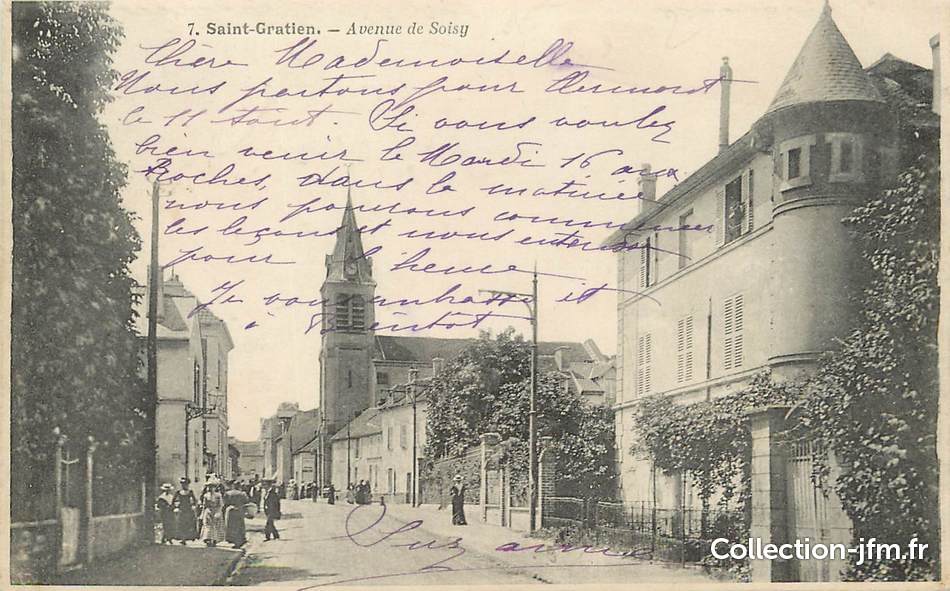 7. Saint-Gratien. - Avenue de Soisy
Chère Mademoiselle
Nous partons pour Clermont
le 11 Août. Si vous voulez
bien venir le Mardi 16 aux
Roches, dans la matinée
nous pouvons commencer
les leçons et nous entendre
pour l'heure
Je vous embrasse et
à bientôt
Suzanne
Collection-jfm.fr